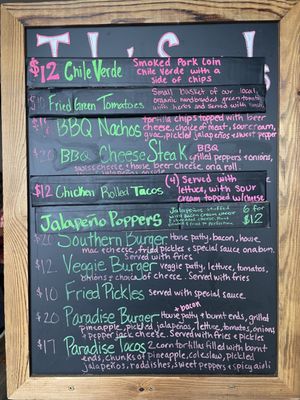 $12 Chile Verde Smoked Pork Loin
Chile Verde with a
side of chips
$10 Fried Green Tomatoes Small basket of our local,
organic handbreaded green tomatoes
with herbs and served with
BBQ Nachos tortilla chips topped with beer
cheese, choice of meat, sour cream,
guac, pickled jalapeños + sweet pepper
$20 BBQ Cheese Steak BBQ
grilled peppers + onions,
house beer cheese on a roll
$12 Chicken Rolled Tacos (4) Served with
lettuce, with sour
cream topped w/cheese
Jalapeño Poppers 6 for
$12
$20 Southern Burger House patty, bacon, house
mac + cheese, fried pickles + special sauce on a bun.
Served with fries
$12 Veggie Burger veggie patty, lettuce, tomatoes,
onions + choice of cheese. Served with fries
$10 Fried Pickles served with special sauce
+ bacon
$20 Paradise Burger House patty + burnt ends, grilled
pineapple, pickled jalapeños, lettuce, tomatoes, onions
+ pepper jack cheese. Served with fries + pickles
$17 Paradise Tacos 2 corn tortillas filled with burnt
ends, chunks of pineapple, coleslaw, pickled
jalapeños, raddishes, sweet peppers + spicy aioli